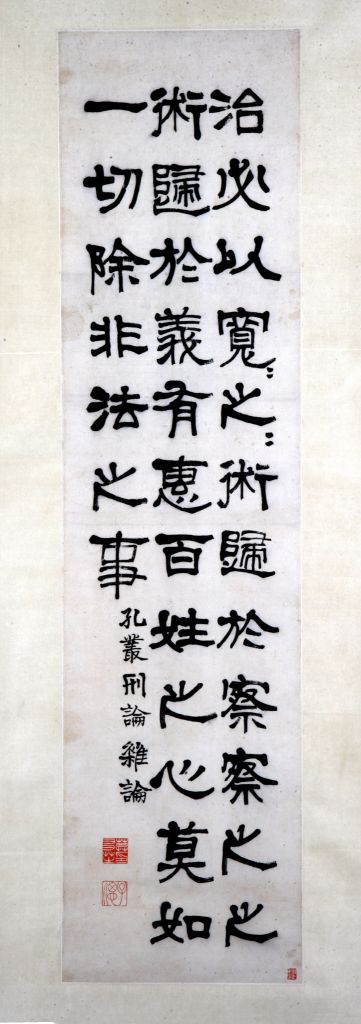 治必以寬〻之〻術歸於察察之之
術歸於義有惠百姓之心莫如
一切除非法之事
孔叢刑論雜論